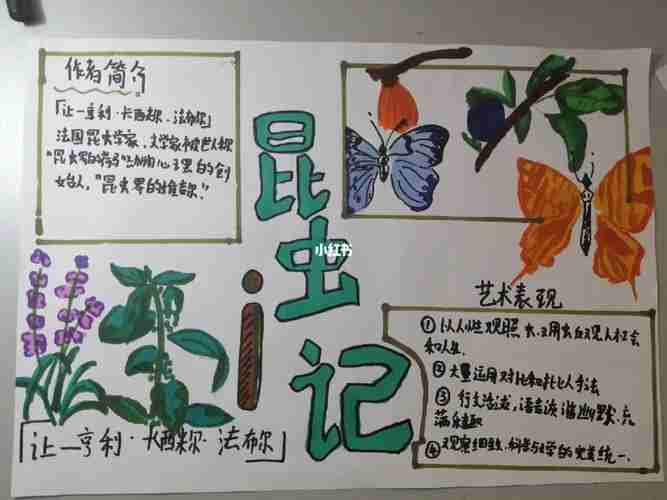 作者简介
「让一亨利·卡西米尔·法布尔」
法国昆虫学家,文学家被世人称
"昆虫界的荷马"
始人,"昆虫界的维吉尔".
昆虫记
小红书
艺术表现
① 以人性观照虫,用虫性观人社会
和人生.
② 大量运用对比和拟人手法
③ 行文活泼,语言谈谐幽默,充
满情趣
④ 观察细致,科学与文学的完美统一.
「让一亨利·卡西米尔·法布尔」